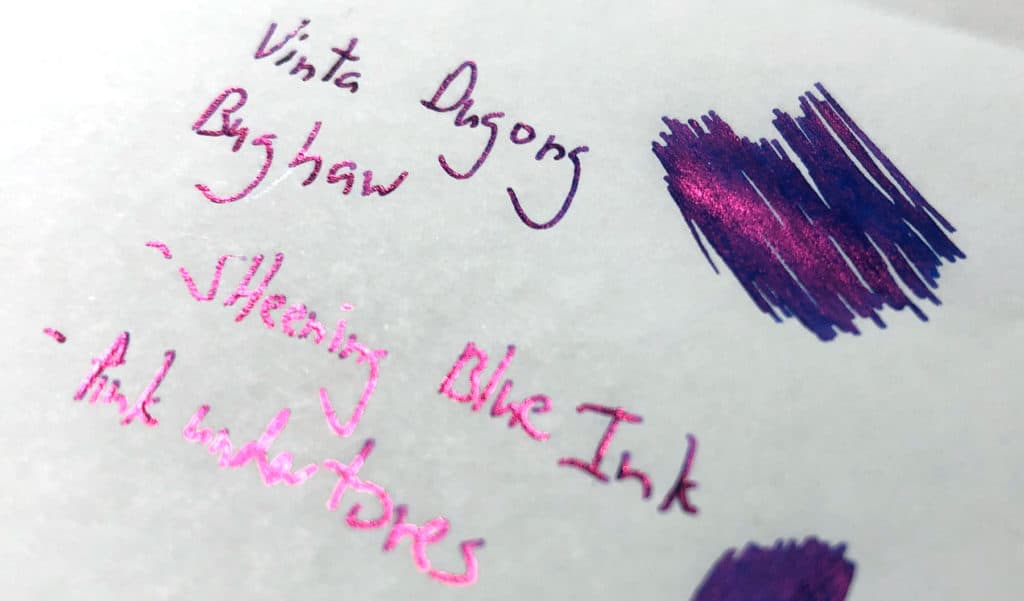 Vinta Dugong
Bughaw
- SHeening Blue Ink
- Pink undertones